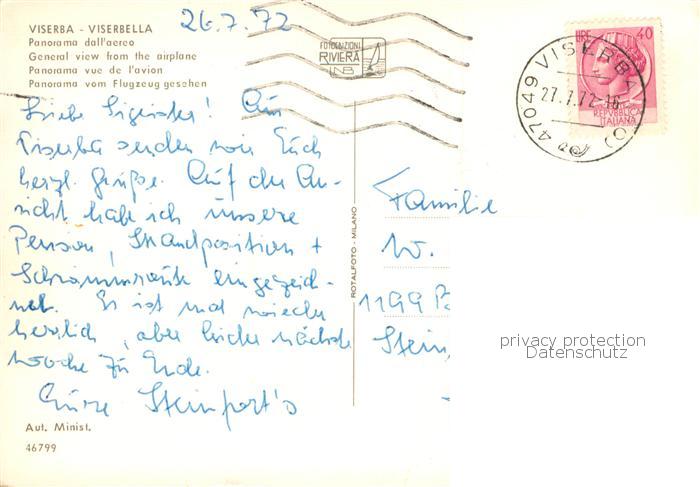 26.7.72
VISERBA - VISERBELLA
Panorama dall'aereo
General view from the airplane
Panorama vue de l'avion
Panorama vom Flugzeug gesehen
FOTOEDIZIONI
RIVIERA
LIRE 40
REPVBBLICA
ITALIANA
47049 VISERBA (FO)
27.7.72-16
Liebe ! Aus
Viserba senden wir Euch
herzl. Grüße. Auf der An-
sicht habe ich unsere
Pension, Standposition +
eingezeich-
net. Es ist mal wieder
herrlich, aber leider nächste
Woche zu Ende.
Eure Steinfort's
Familie
W.
1199
Stein
ROTALFOTO - MILANO
Aut. Minist.
46799
privacy protection
Datenschutz